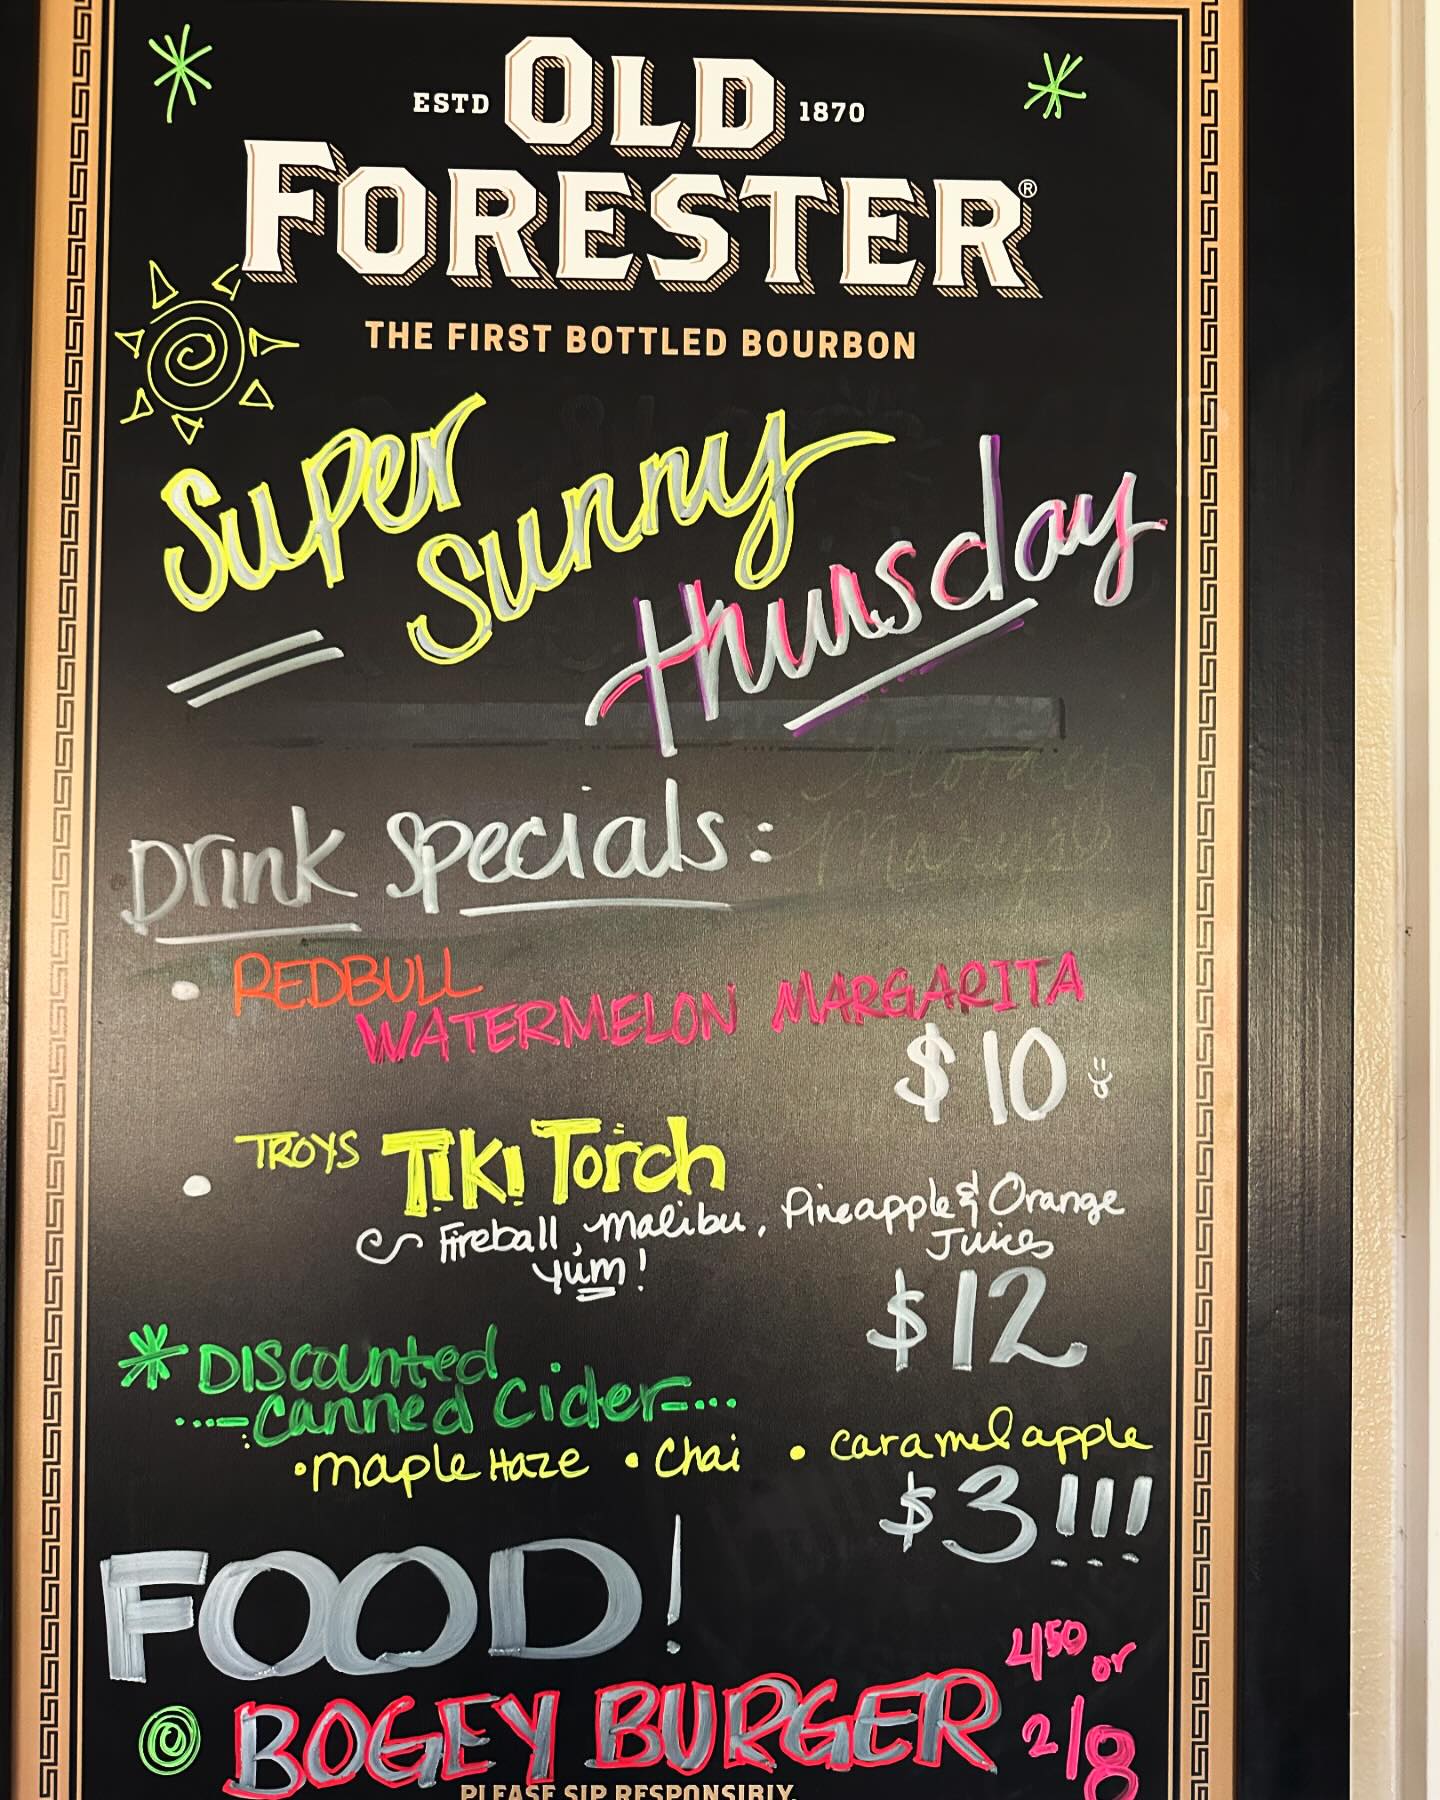 ESTD OLD 1870
FORESTER®
THE FIRST BOTTLED BOURBON
Super
Sunny
Thursday
Drink Specials:
bloody
Mary's
• REDBULL
WATERMELON MARGARITA
$10
• TROYS TIKI Torch
Fireball, Malibu, Pineapple & Orange
Juices
yum!
$12
* DISCOUNTED
...-Canned Cider-...
• Maple Haze • Chai • caramel apple
$3!!!
FOOD!
4.50 or
BOGEY BURGER 2/8
PLEASE SIP RESPONSIBLY.